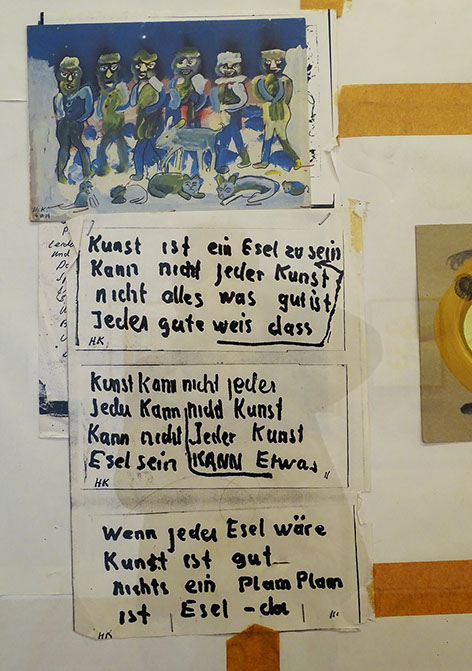 HK
Kunst ist ein Esel zu sein
Kann nicht jeder Kunst
nicht alles was gut ist
Jeder gute weis dass
HK
Kunst Kann nicht jeder
Jeder Kann nicht Kunst
Kann nicht Jeder Kunst
Esel sein KANN Etwas
HK II
Wenn jeder Esel wäre
Kunst ist gut
nichts ein PlamPlam
ist Esel - da
HK III